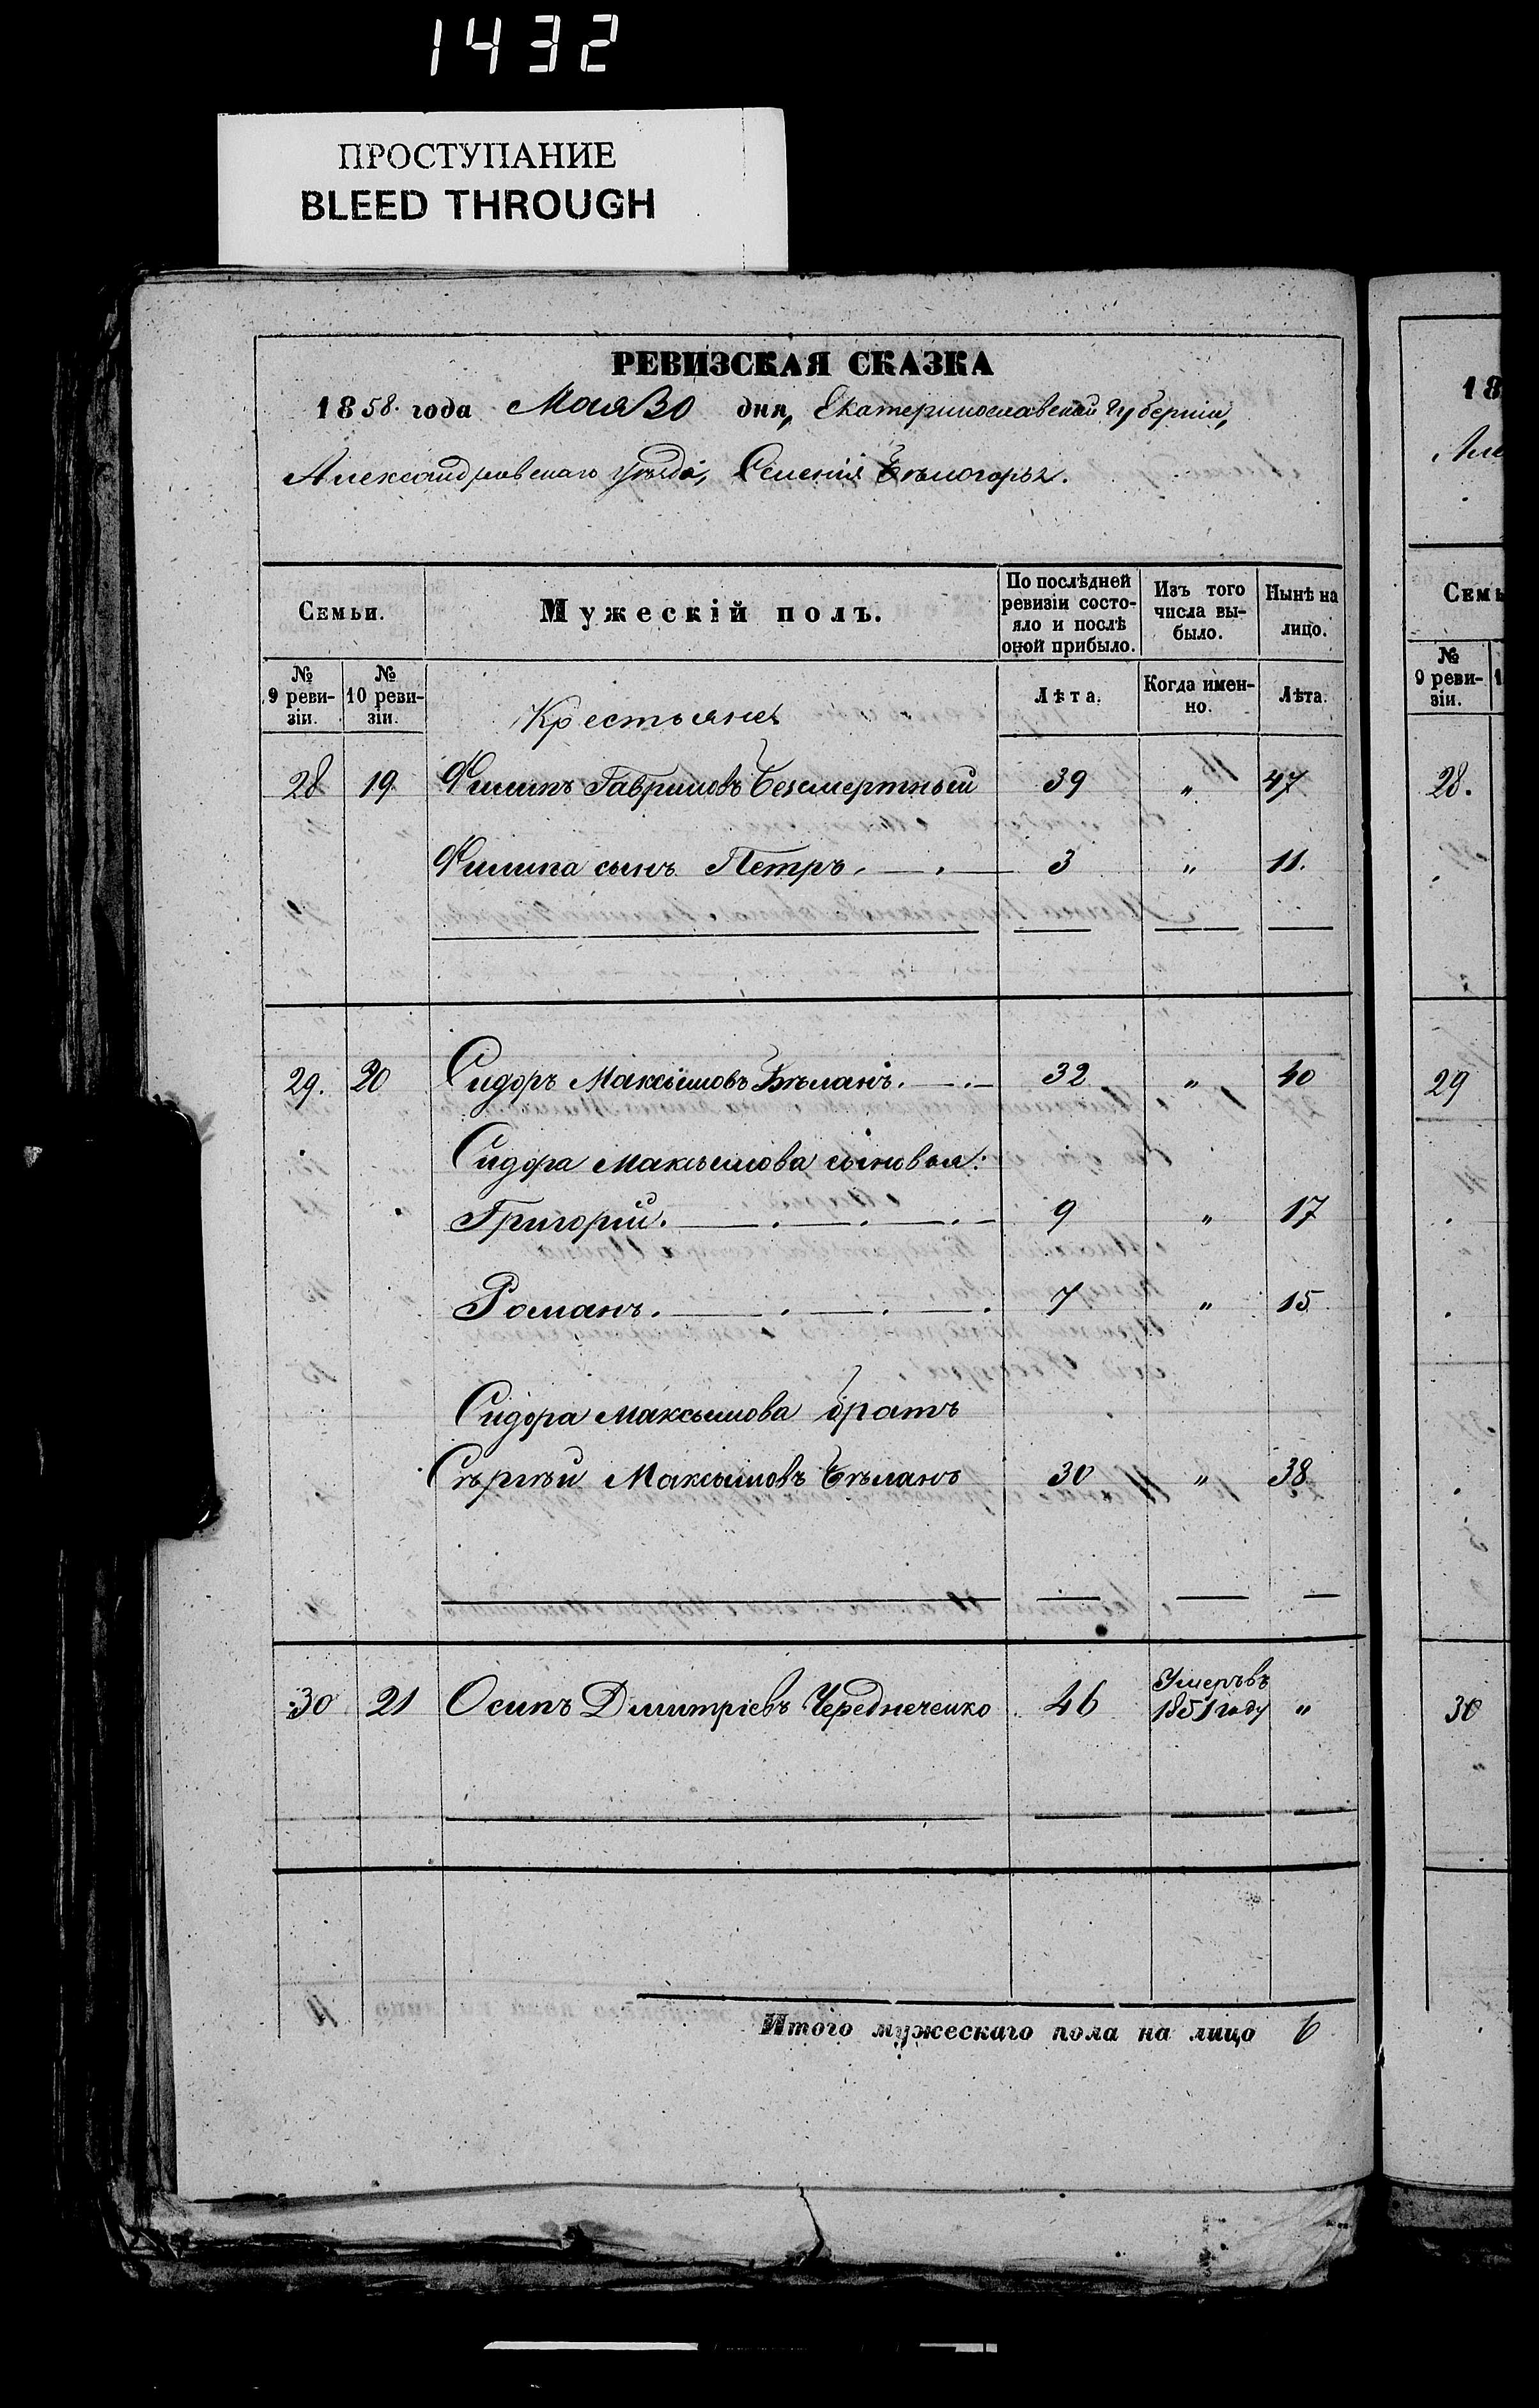 1432
ПРОСТУПАНИЕ
BLEED THROUGH
РЕВИЗСКАЯ СКАЗКА
1858. года Мая 30 дня, Екатеринославской Губерніи,
Александровскаго уѣзда, Селенія Бѣлогорья.
Семьи. Мужескій полъ. По послѣдней ревизіи состо-яло и послѣ оной прибыло. Изъ того числа вы-было. Нынѣ на лицо.
№ 9 реви-зіи. № 10 реви-зіи. Лѣта. Когда имен-но. Лѣта.
Крестьяне
28 19 Филипъ Гавриловъ Безсмертный 39 " 47
Филипа сынъ Петръ. 3 " 11.
29. 20 Сидоръ Максимовъ Бѣланъ. 32 " 40
Сидора Максимова сыновья:
Григорій. 9 " 17
Романъ. 7 " 15
Сидора Максимова братъ
Сѣргѣй Максимовъ Бѣланъ 30 " 38
30 21 Осипъ Дмитріевъ Чередниченко 46 Умеръ въ 1851 году "
Итого мужескаго пола на лицо 6
18
Але
Семь
№ 9 реви-зіи.
28.
29
30